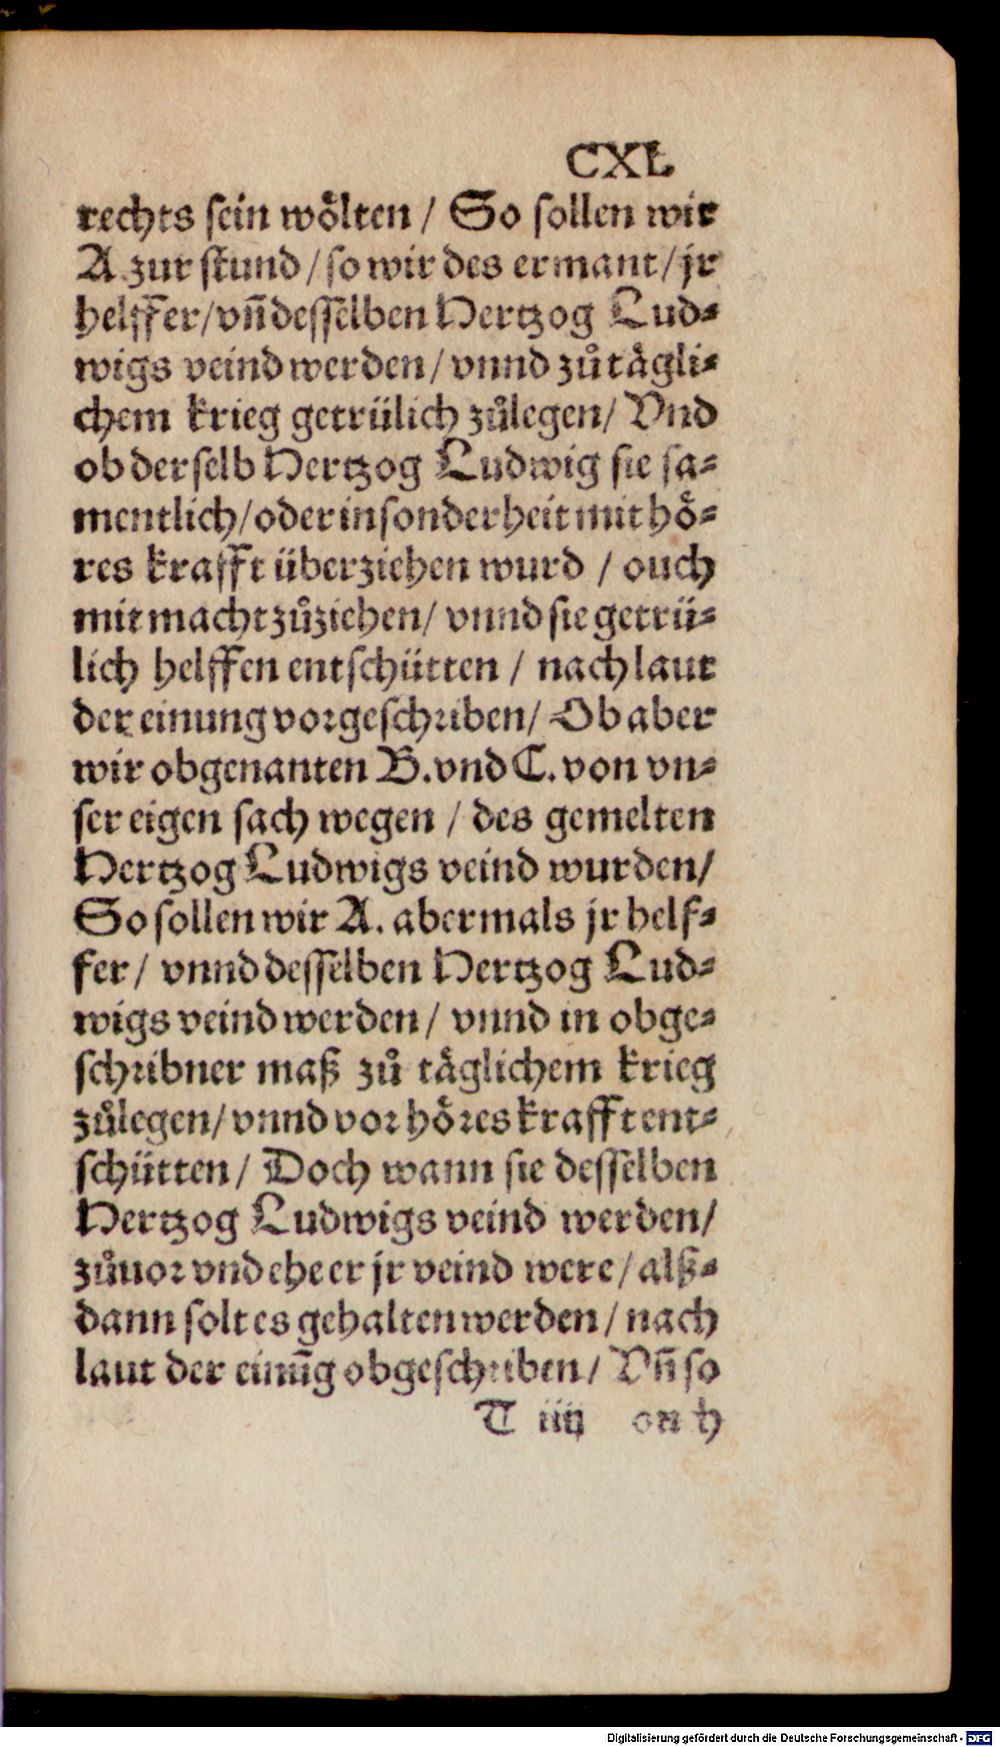 CXL
rechts sein woͤlten / So sollen wir
A. zur stund / so wir des ermant / jr
helffer / vn̄ desselben Hertzog Lud⸗
wigs veind werden / vnnd zů taͤgli⸗
chem krieg getrülich zůlegen / Vnd
ob derselb Hertzog Ludwig sie sa⸗
mentlich / oder in sonderheit mit hoͤ⸗
res krafft überziehen wurd / ouch
mit macht zůziehen / vnnd sie getrü⸗
lich helffen entschütten / nach laut
der einung vorgeschriben / Ob aber
wir obgenanten B. vnd C. von vn⸗
ser eigen sach wegen / des gemelten
Hertzog Ludwigs veind wurden /
So sollen wir A. abermals jr helf⸗
fer / vnnd desselben Hertzog Lud⸗
wigs veind werden / vnnd in obge⸗
schribner maß zů taͤglichem krieg
zůlegen / vnnd vor hoͤres krafft ent⸗
schütten / Doch wann sie desselben
Hertzog Ludwigs veind werden /
zůuor vnd ehe er jr veind were / alß⸗
dann solt es gehalten werden / nach
laut der einūg obgeschriben / Vn̄ so
T iiij
Digitalisierung gefördert durch die Deutsche Forschungsgemeinschaft - DFG